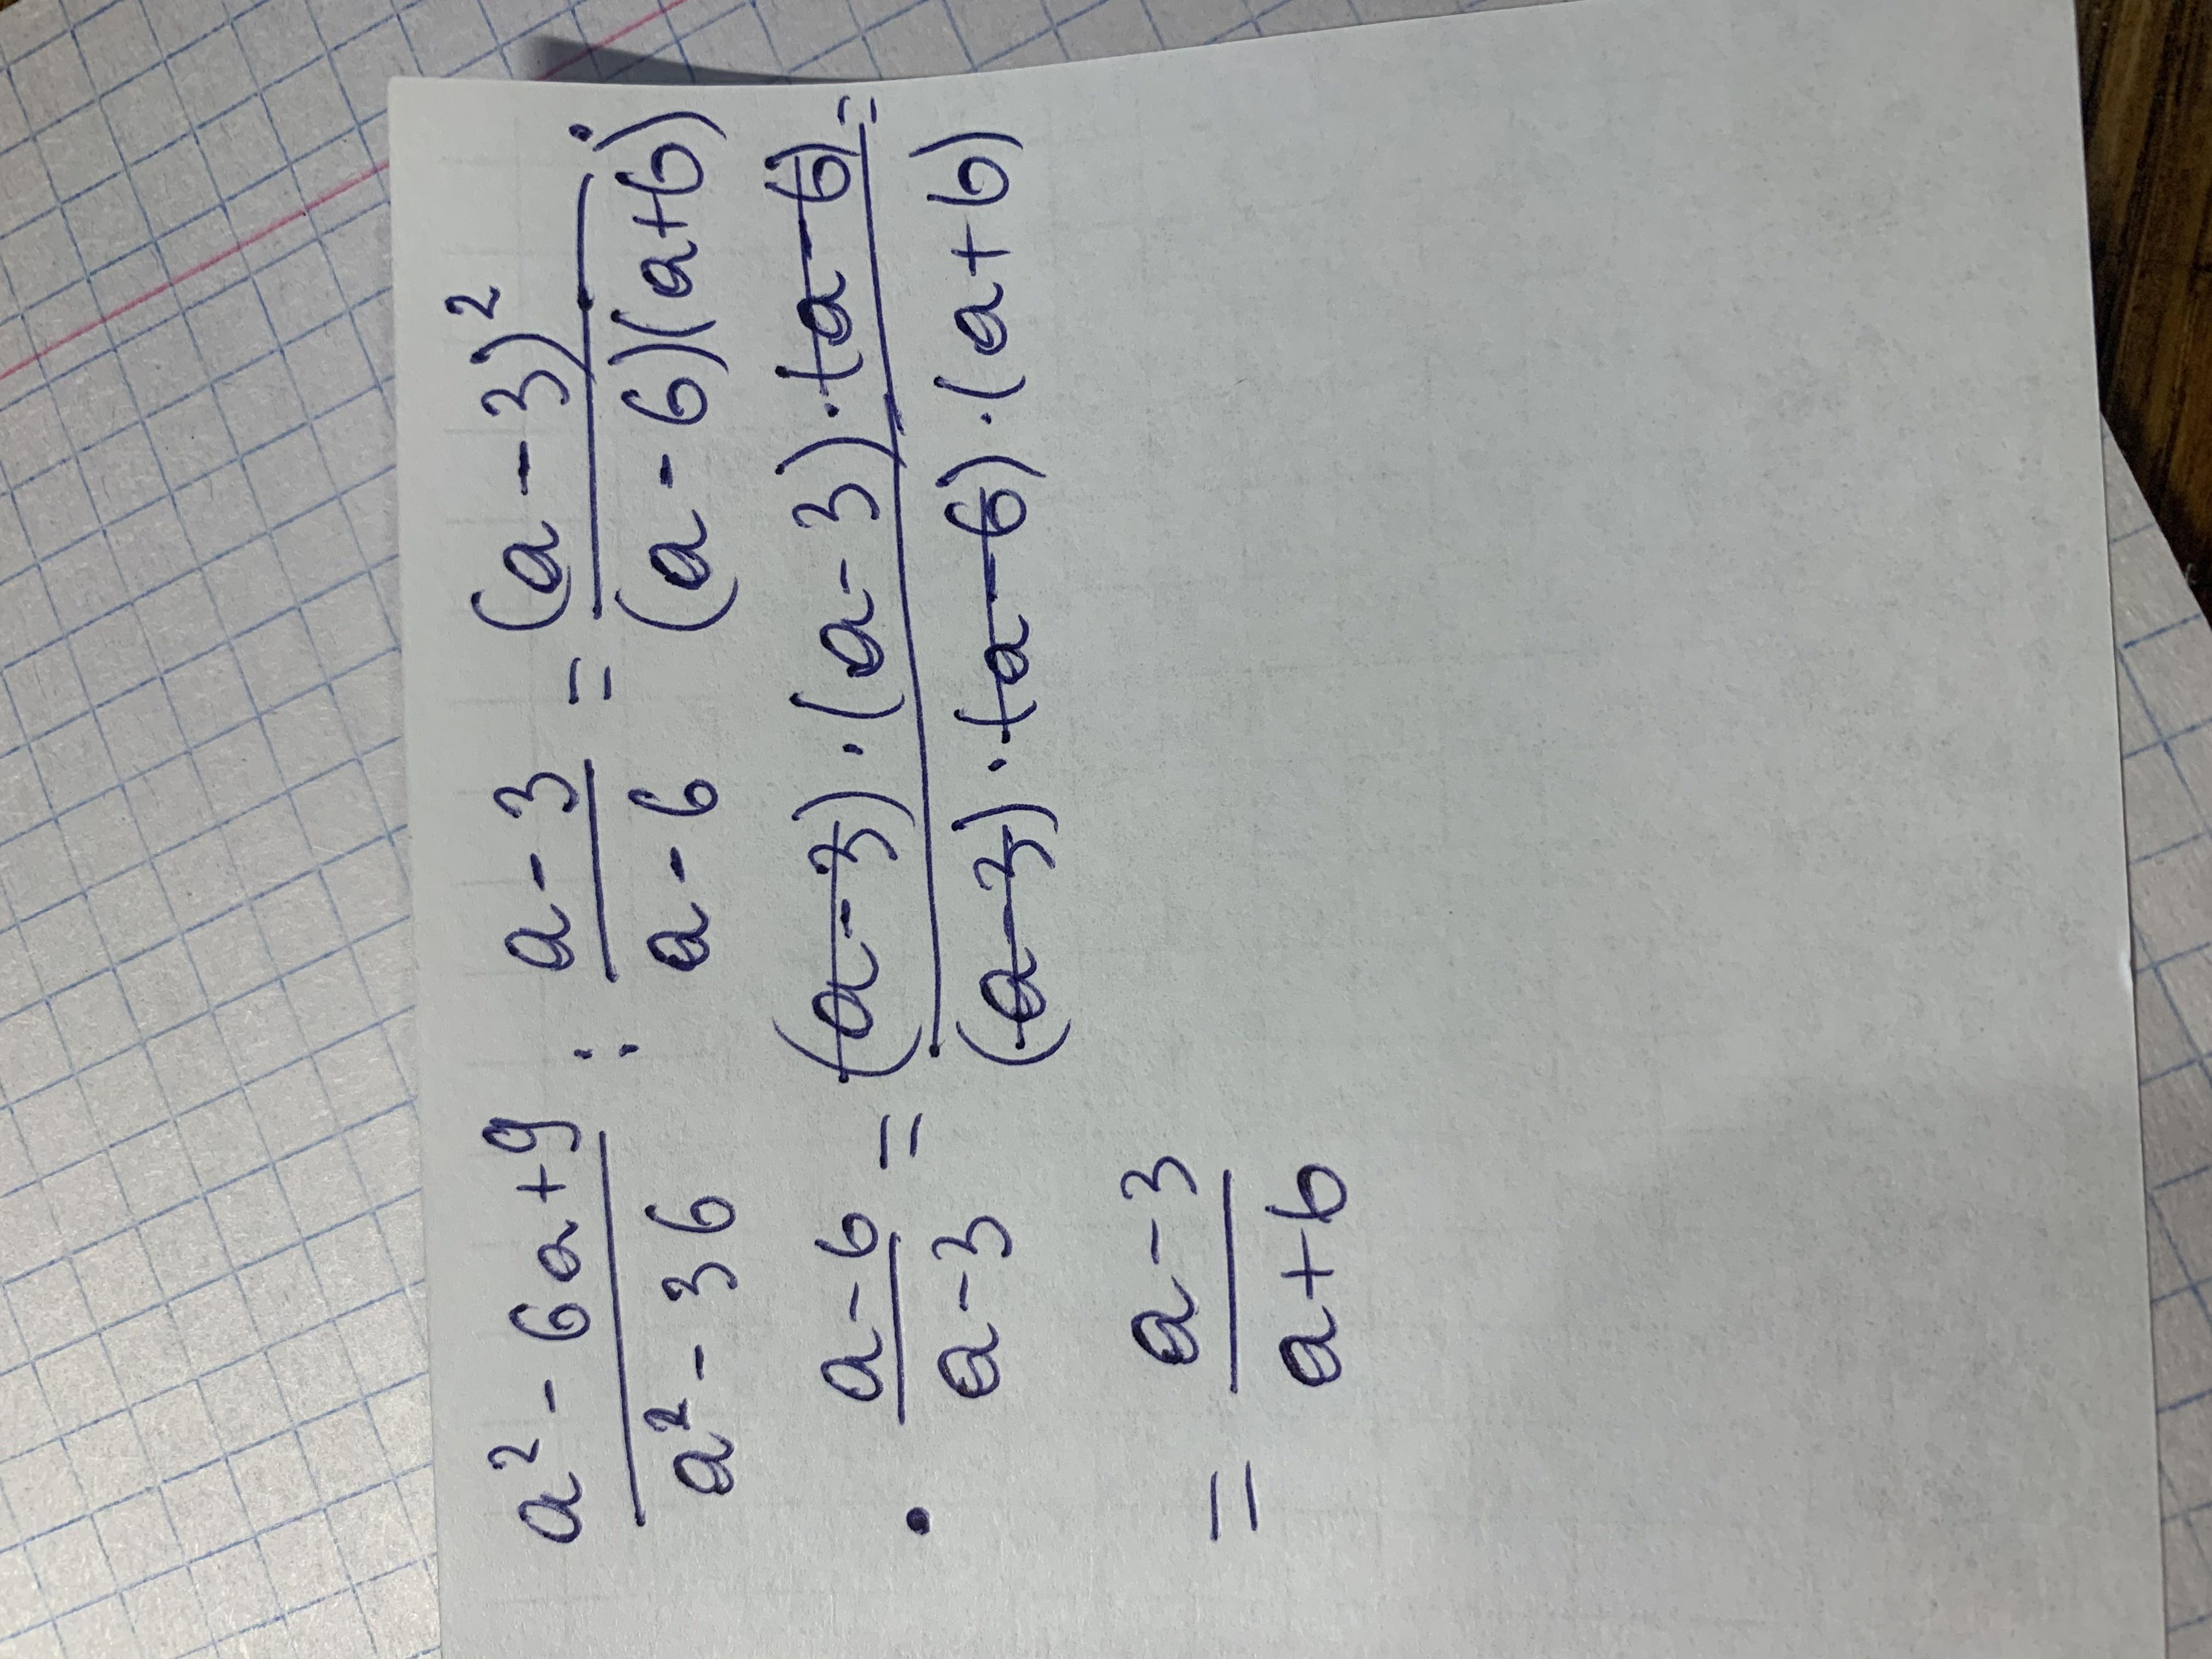 (a² - 6a + 9)/(a² - 36) : (a - 3)/(a - 6) = (a - 3)²/((a - 6)(a + 6)) ·
· (a - 6)/(a - 3) = ((a - 3) · (a - 3) · (a - 6))/((a - 3) · (a - 6) · (a + 6)) =
= (a - 3)/(a + 6)